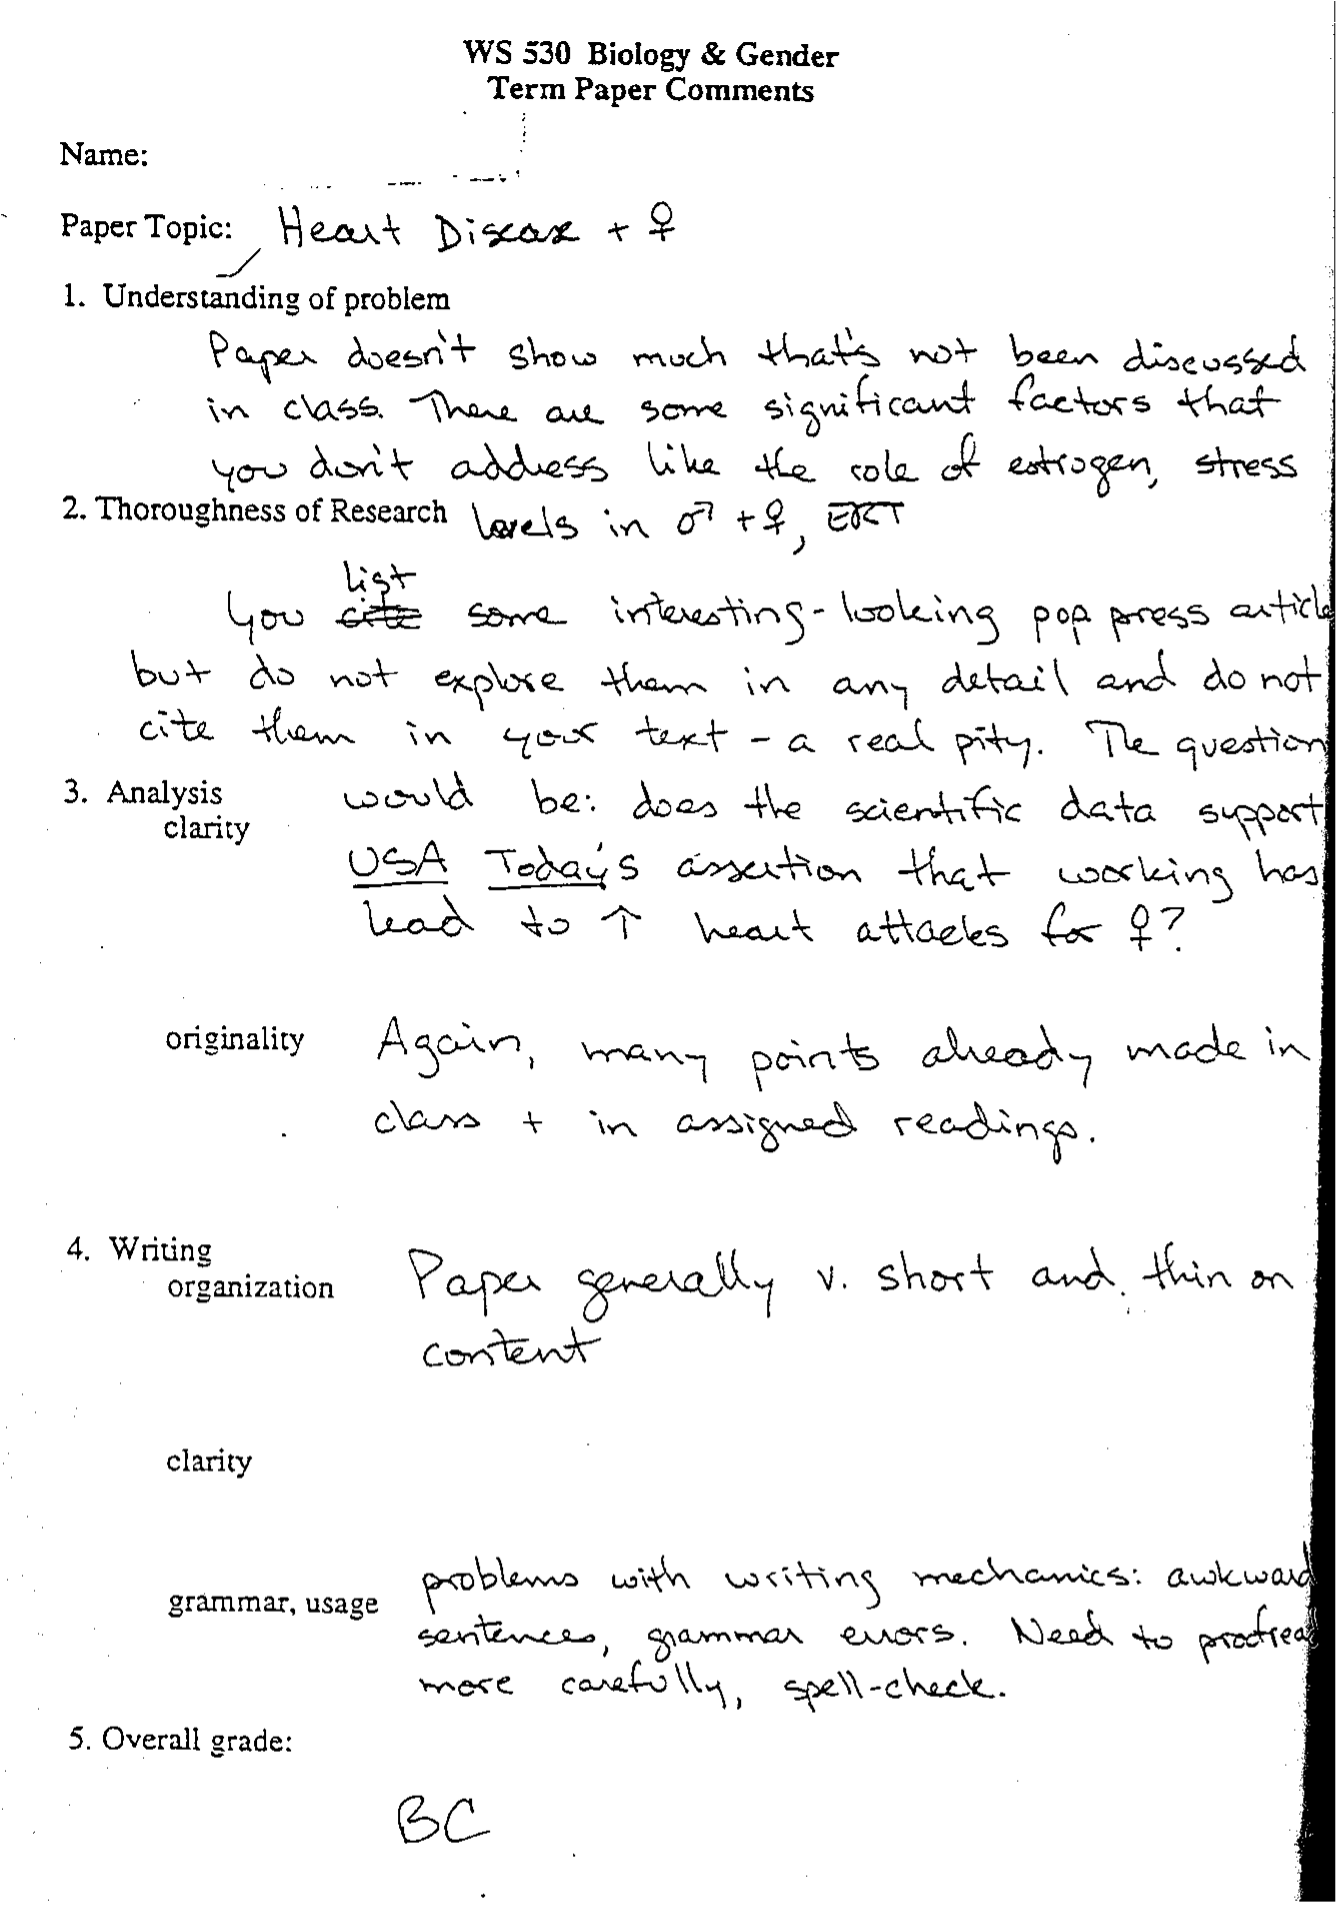 WS 530 Biology & Gender
Term Paper Comments
Name:
Paper Topic: Heart Disease + ♀
1. Understanding of problem
Paper doesn't show much that's not been discussed
in class. There are some significant factors that
you don't address like the role of estrogen, stress
2. Thoroughness of Research levels in ♂ + ♀, ERT
list
You cite some interesting-looking pop press article
but do not explore them in any detail and do not
cite them in your text - a real pity. The question
3. Analysis would be: does the scientific data support
clarity
USA Today's assertion that working has
lead to ↑ heart attacks for ♀?
originality Again, many points already made in
class + in assigned readings.
4. Writing
organization Paper generally v. short and thin on
content
clarity
problems with writing mechanics: awkward
grammar, usage
sentences, grammar errors. Need to proofrea
more carefully, spell-check.
5. Overall grade:
BC